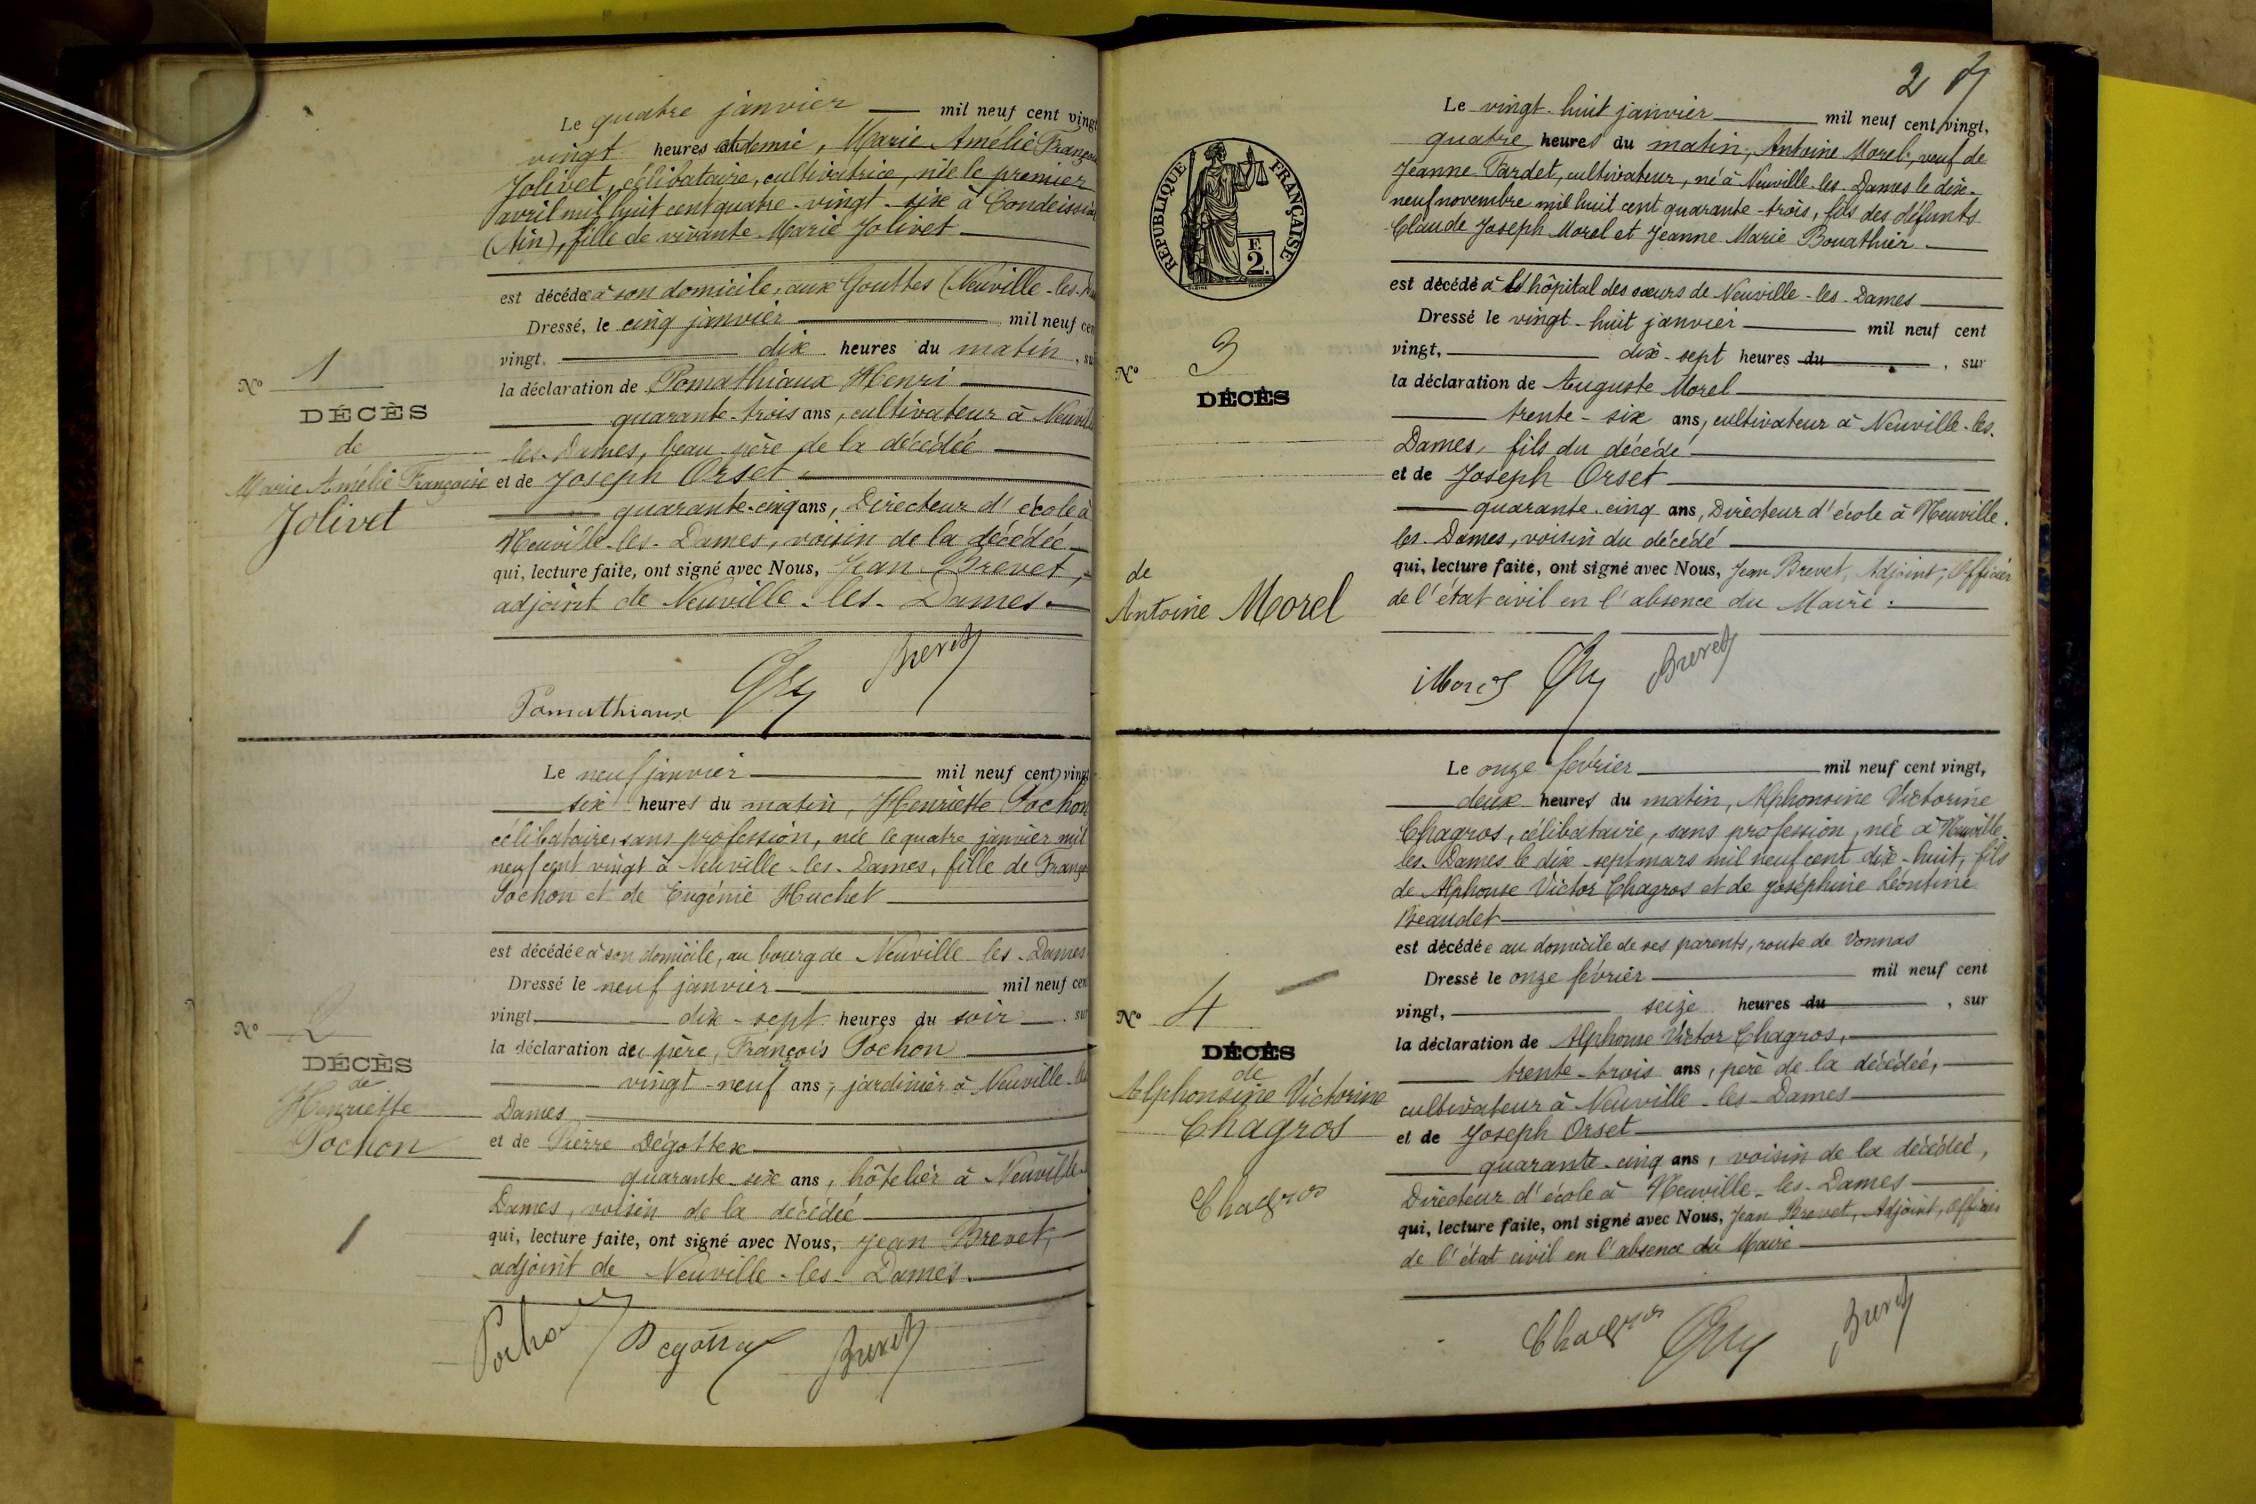 Le quatre janvier mil neuf cent vingt
vingt heures et demie, Marie Amélie Françoise
Jolivet, célibataire, cultivatrice, née le premier
avril mil huit cent quatre-vingt-six à Condeissiat
(Ain), fille de vivante Marie Jolivet
est décédée à son domicile, aux Gouttes (Neuville-les-
Dressé, le cinq janvier mil neuf cent
vingt, dix heures du matin, sur
la déclaration de Pomathiaux Henri
quarante-trois ans, cultivateur à Neuville
les-Dames, beau père de la décédée
et de Joseph Orset
quarante-cinq ans, Directeur d'école à
Neuville-les-Dames, voisin de la décédée
qui, lecture faite, ont signé avec Nous, Jean Brevet,
adjoint de Neuville-les-Dames.
Nº 1
DÉCÈS
de
Marie Amélie Françoise
Jolivet
Pomathiaux Brevet
Le neuf janvier mil neuf cent vingt
six heures du matin, Henriette Pochon
célibataire, sans profession, née le quatre janvier mil
neuf cent vingt à Neuville-les-Dames, fille de François
Pochon et de Eugénie Huchet
est décédée à son domicile, au bourg de Neuville-les-Dames
Dressé le neuf janvier mil neuf cent
vingt, dix-sept heures du soir, sur
la déclaration du père, François Pochon
vingt-neuf ans, jardinier à Neuville-les
Dames
et de Pierre Dégottex
quarante-six ans, hôtelier à Neuville
Dames, voisin de la décédée
qui, lecture faite, ont signé avec Nous, Jean Brevet,
adjoint de Neuville-les-Dames.
Nº 2
DÉCÈS
de
Henriette
Pochon
Pochon Brevet
2
RÉPUBLIQUE FRANÇAISE
F.
2.
Le vingt-huit janvier mil neuf cent vingt,
quatre heures du matin, Antoine Morel, veuf de
Jeanne Tardet, cultivateur, né à Neuville-les-Dames le dix-
neuf novembre mil huit cent quarante-trois, fils des défunts
Claude Joseph Morel et Jeanne Marie Bouathier
est décédé à l'hôpital des sœurs de Neuville-les-Dames
Dressé le vingt-huit janvier mil neuf cent
vingt, dix-sept heures du, sur
la déclaration de Auguste Morel
trente-six ans, cultivateur à Neuville-les-
Dames, fils du décédé
et de Joseph Orset
quarante-cinq ans, Directeur d'école à Neuville-
les-Dames, voisin du décédé
qui, lecture faite, ont signé avec Nous, Jean Brevet, Adjoint, Officier
de l'état civil en l'absence du Maire.
Nº 3
DÉCÈS
de
Antoine Morel
Morel Brevet
Le onze février mil neuf cent vingt,
deux heures du matin, Alphonsine Victorine
Chagros, célibataire, sans profession, née à Neuville-
les-Dames le dix-sept mars mil neuf cent dix-huit, fils
de Alphonse Victor Chagros et de Joséphine Léontine
Beaudet
est décédée au domicile de ses parents, route de Vonnas
Dressé le onze février mil neuf cent
vingt, seize heures du, sur
la déclaration de Alphonse Victor Chagros,
trente-trois ans, père de la décédée,
cultivateur à Neuville-les-Dames
et de Joseph Orset
quarante-cinq ans, voisin de la décédée,
Directeur d'école à Neuville-les-Dames
qui, lecture faite, ont signé avec Nous, Jean Brevet, Adjoint, Officier
de l'état civil en l'absence du Maire
Nº 4
DÉCÈS
de
Alphonsine Victorine
Chagros
Chagros
Chagros Brevet